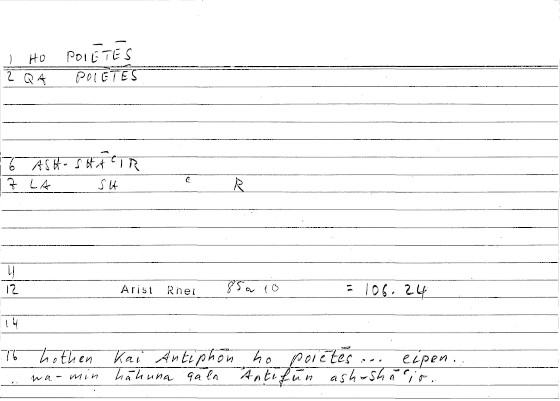 1 HO POIĒTĒS
2 QA POIĒTĒS
6 ASH-SHĀᶜIR
7 LA SH ᶜ R
11
12 Arist Rhet 85a10 = 106.24
14
16 hothen kai Antiphōn ho poiētēs... eipen..
.. wa-min hāhuna qāla Antifūn ash-shāᶜir.